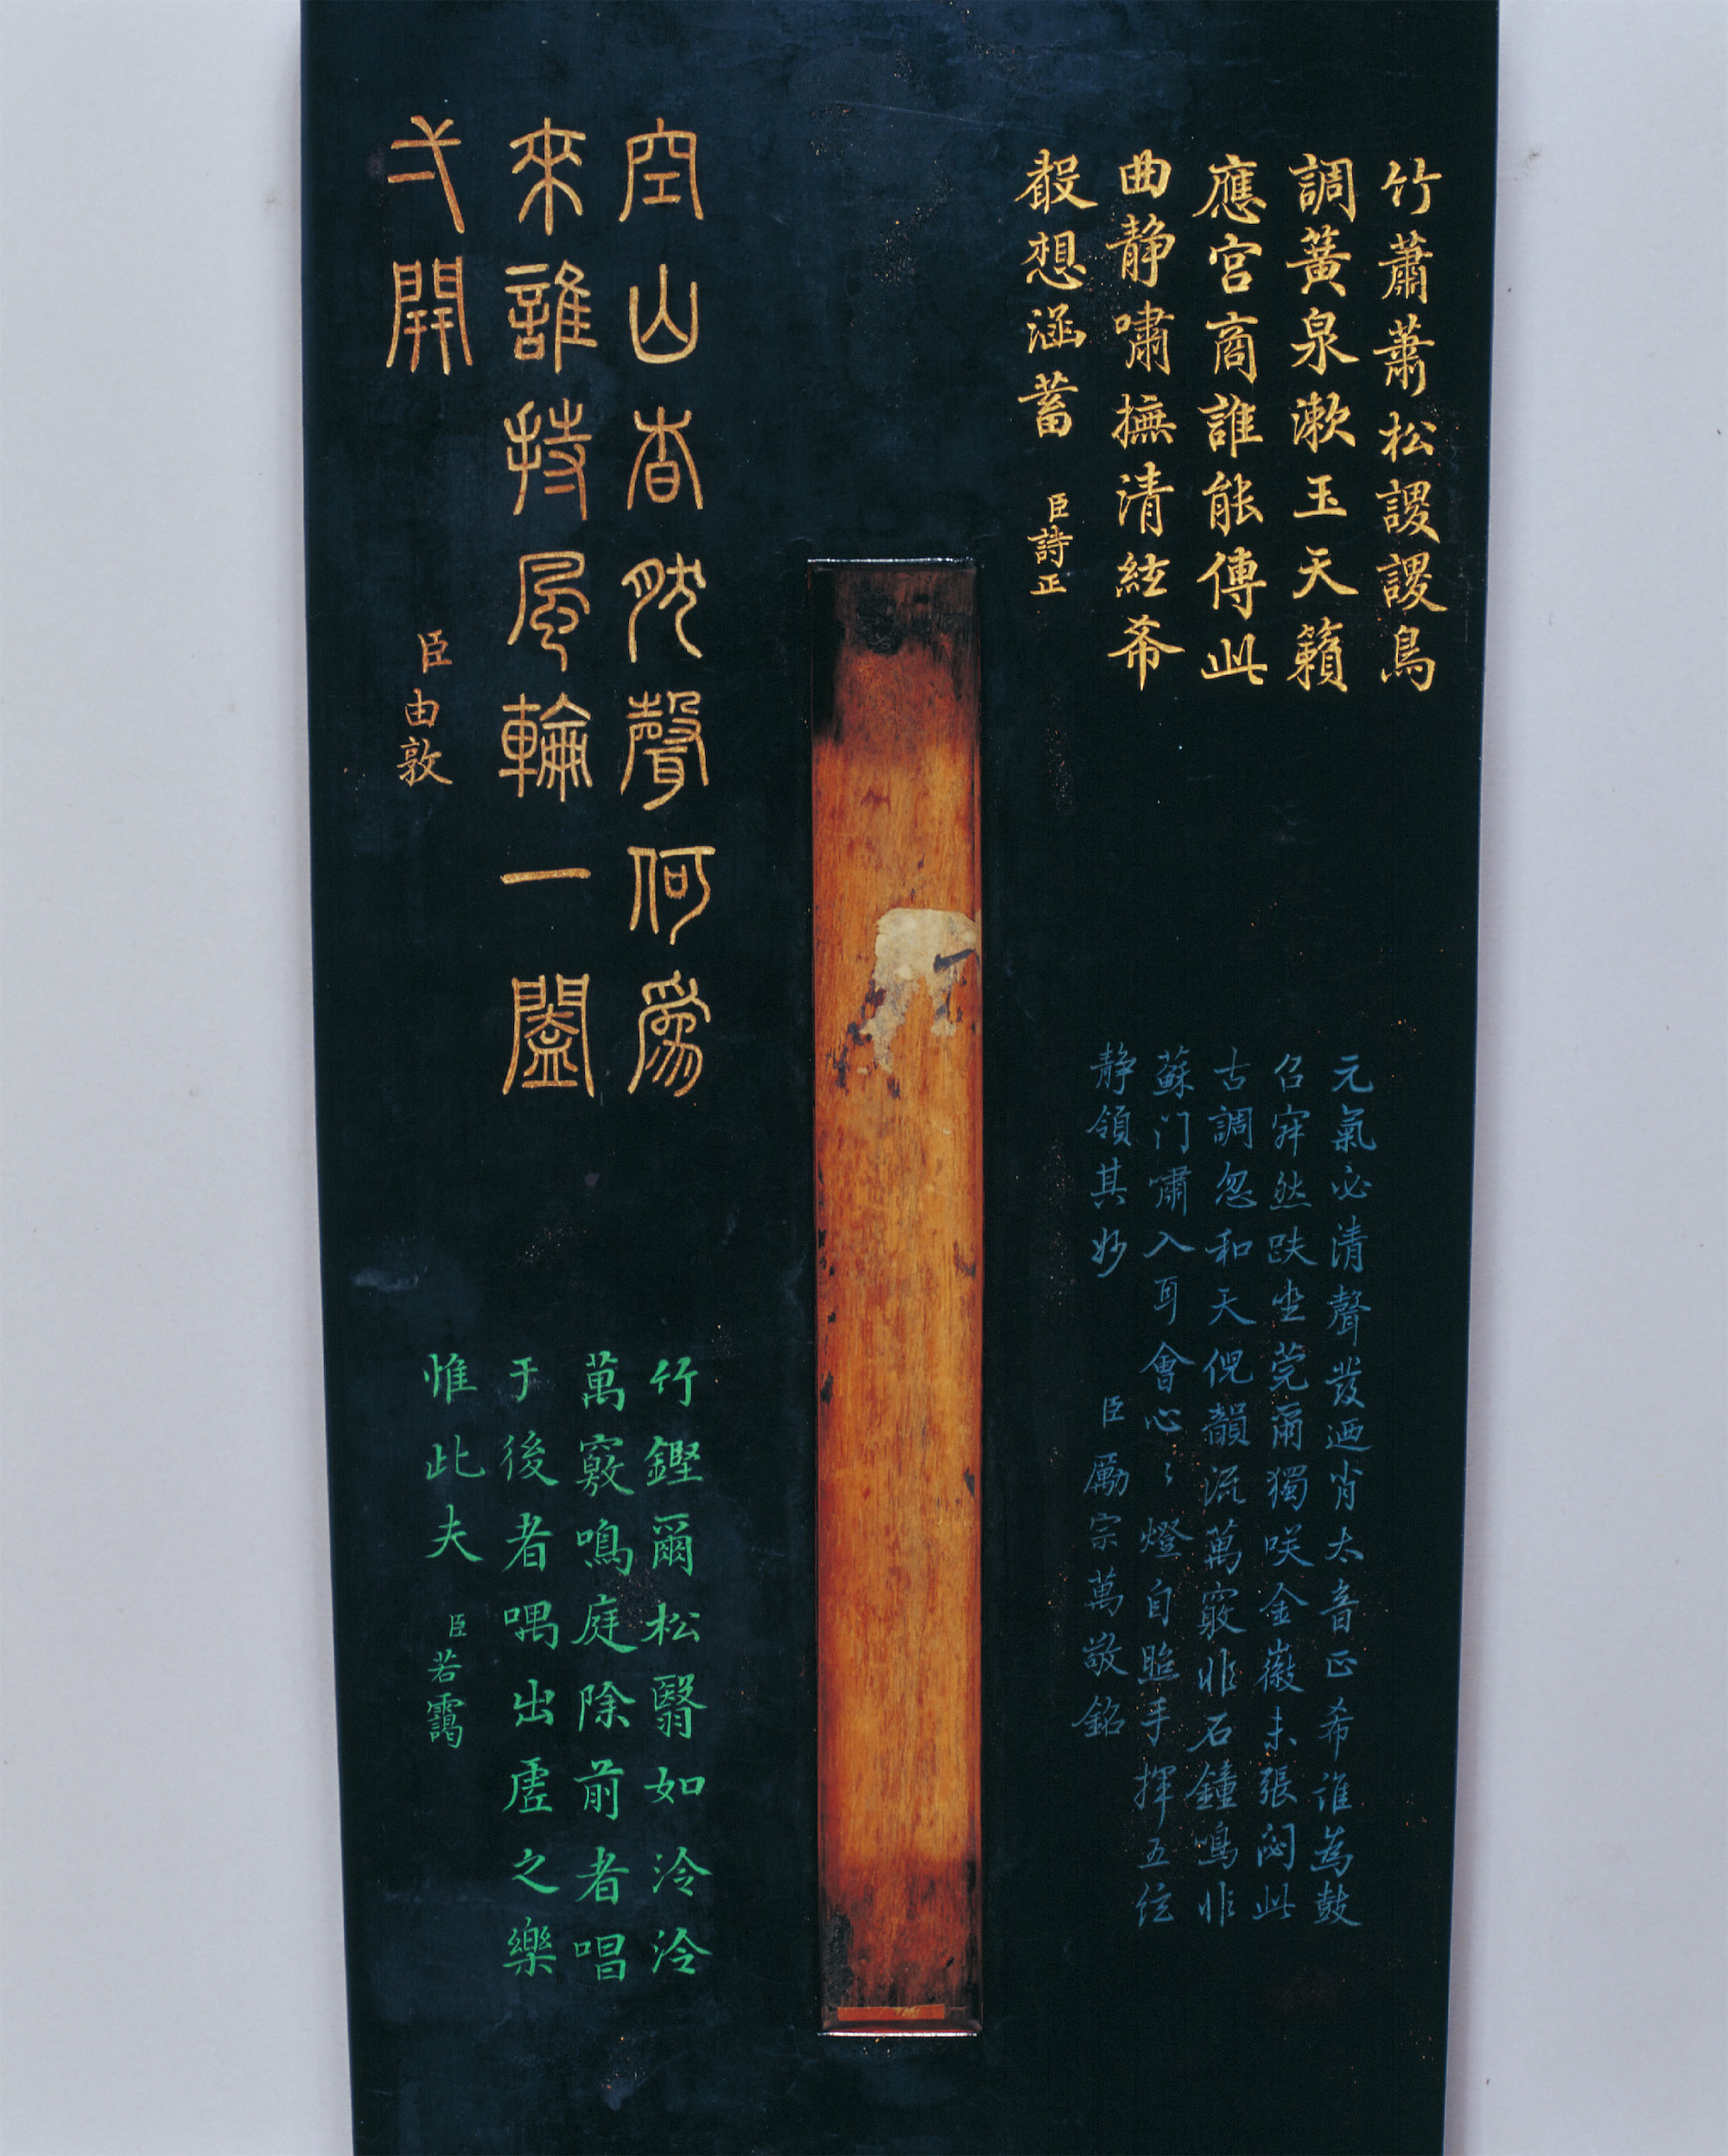 竹蕭蕭松謖謖鳥
調簧泉漱玉天籟
應宮商誰能傳此
曲静嘯撫清絃希
聲想涵蓄
臣詩正
元氣必清聲發迺肖太音正希誰為鼓
召穽然趺坐莞爾獨咲金徽未張閟此
古調忽和天倪韻流萬竅非石鐘鳴非
蘇门嘯入耳會心心燈自照手揮五弦
静領其妙
臣勵宗萬敬銘
空山杳然聲何為
來誰持風輪一闔
弌開
臣由敦
竹鏗爾松翳如泠泠
萬竅鳴庭除前者唱
于後者喁出虛之樂
惟此夫
臣若靄